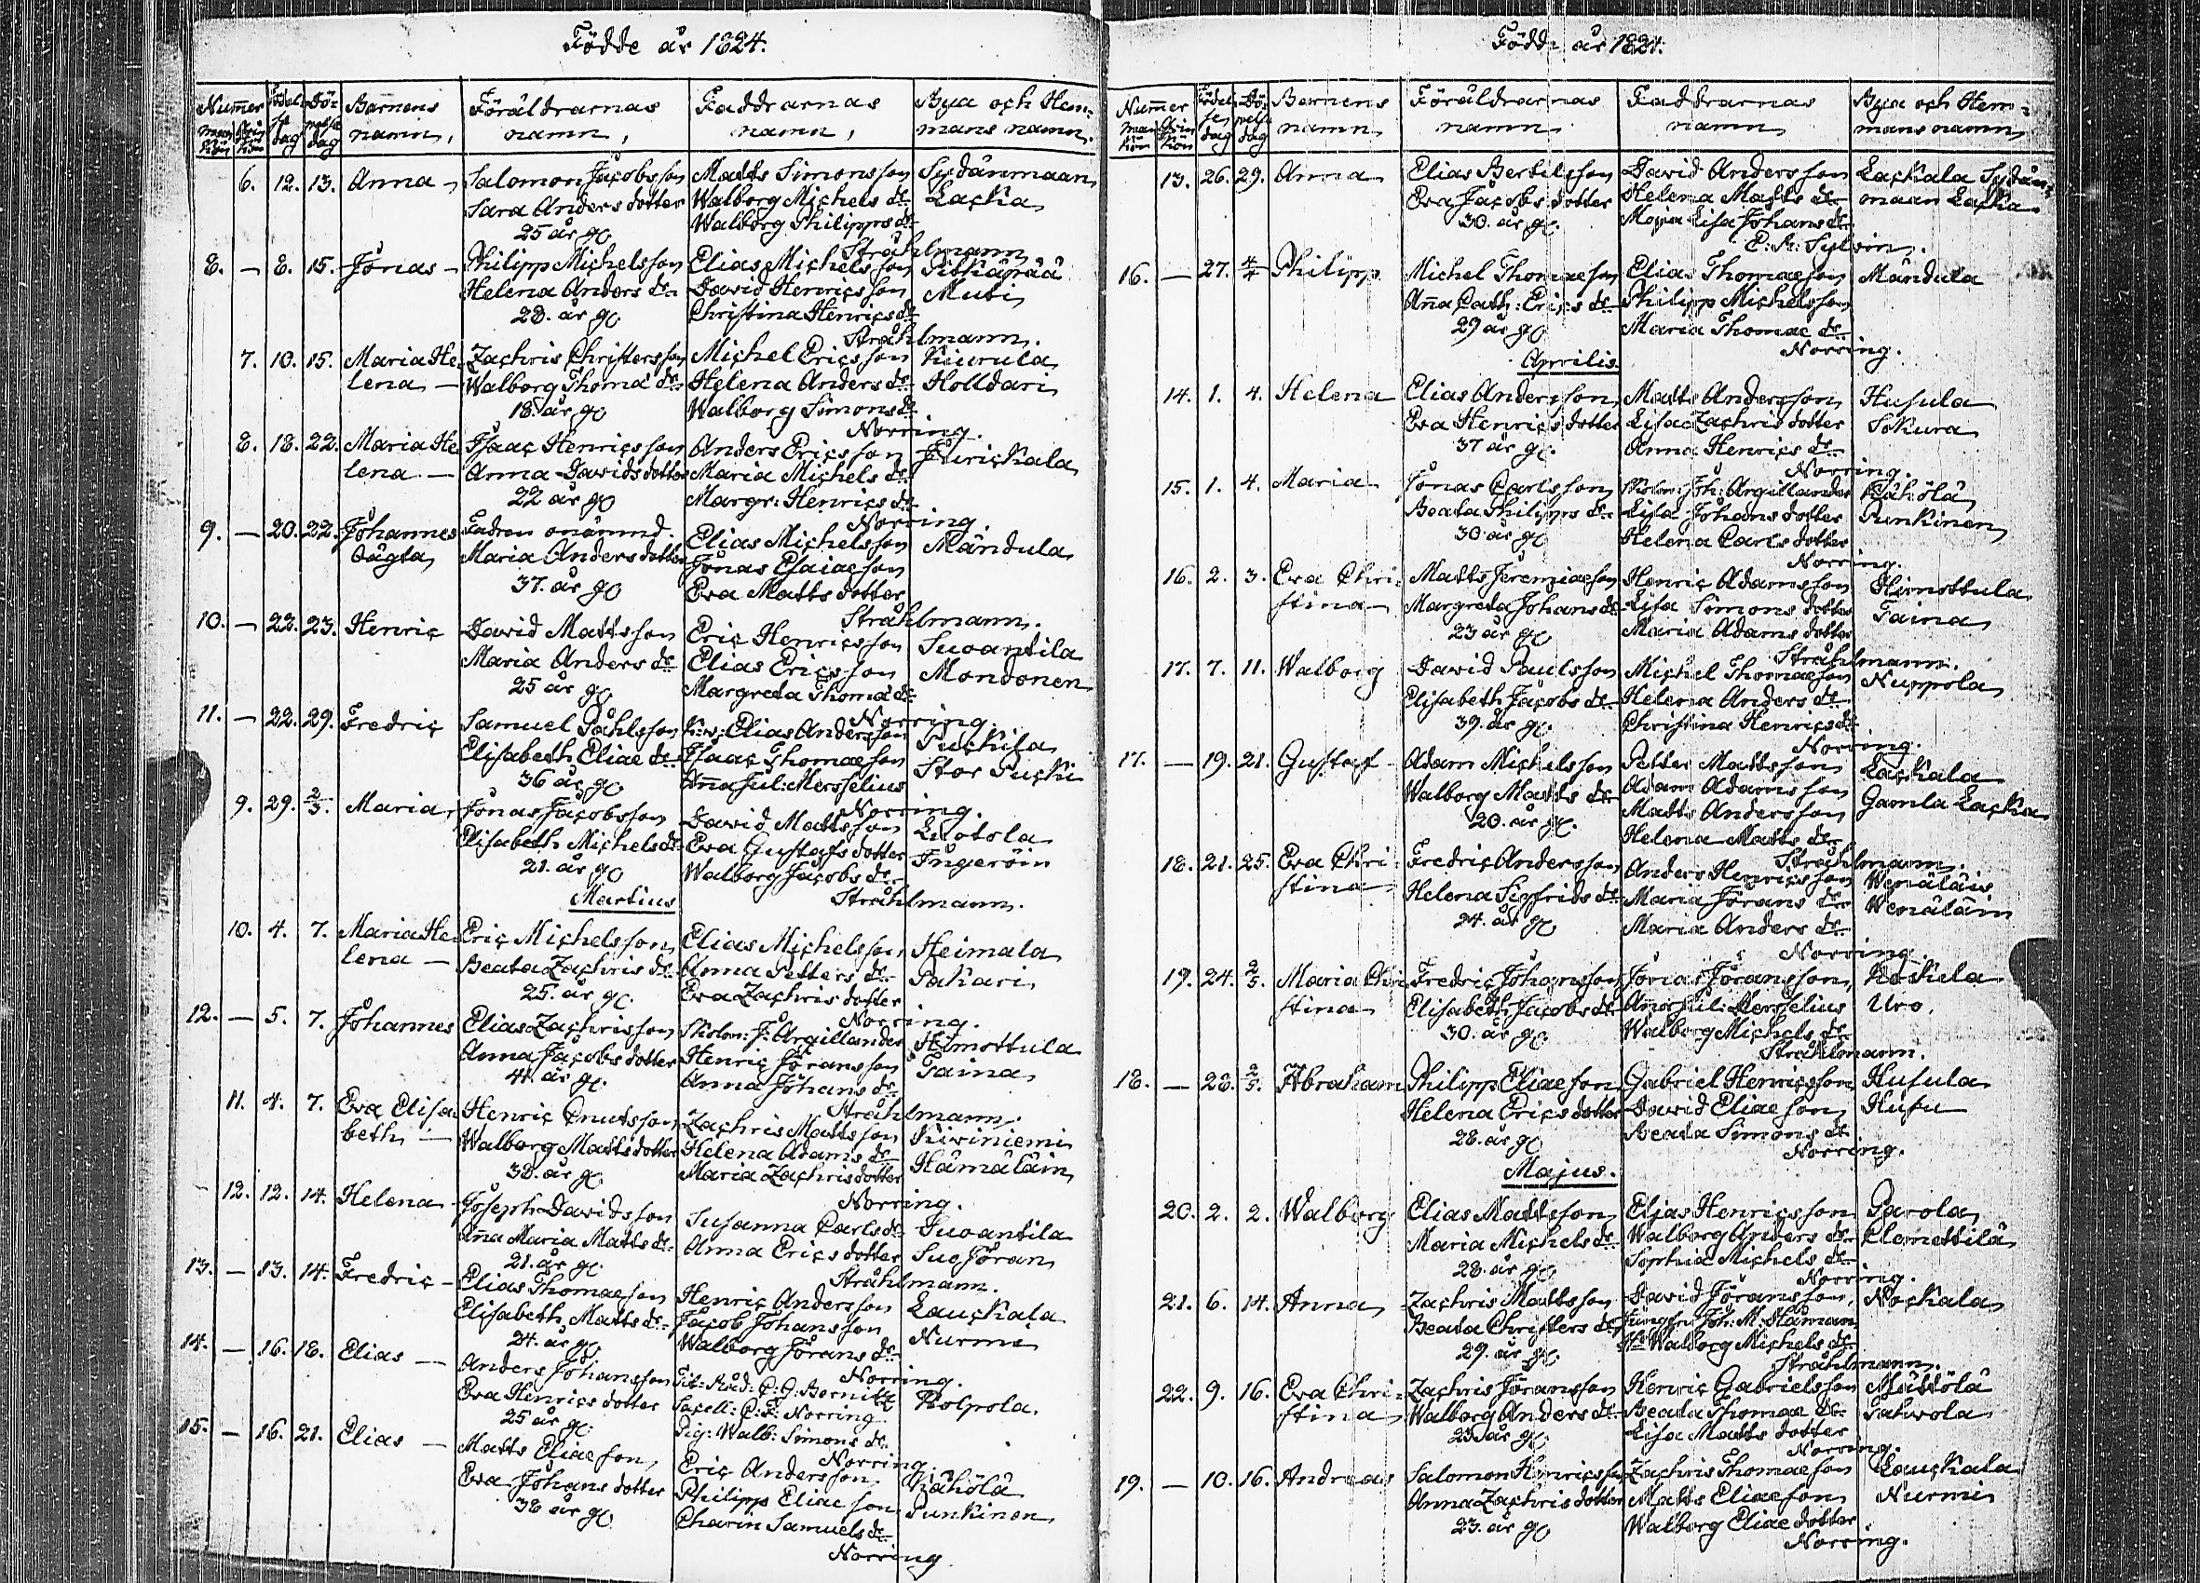 Födde år 1824.
Numer
Man Köñ
Qvin Köñ
Födelse dag
Döpelse dag
Barnens namn,
Föräldrarnas namn,
Faddrarnas namn,
Byа och Hemmans namn.
6. 12. 13. Anna - Salomon Jacobsson Matts Simonsson Sydänmaan
Sara Anders dotter Walborg Michels dr Lacka
25 år gl Walborg Philipps dr
Stråhlmann
8. - 8. 15. Jonas - Philipp Michelsson Elias Michelsson Piskäpää
Helena Anders dr David Henricsson Muti
28. år gl Christina Henrics dr
Stråhlmann.
7. 10. 15. Maria He- Zachris Christersson Michel Ericsson Kiurula
lena - Walborg Thomæ dr Helena Anders dr Holldari
18. år gl Walborg Simons dr
Norring.
8. 18. 22. Maria He Isaac Henricsson Anders Ericsson Jurickala
lena - Anna Davids dotter Maria Michels dr
22 år gl Margr: Henrics dr
Norring.
9. - 20. 22. Johannes Fadren onämnd. Elias Michelsson Mändula
Oägta Maria Anders dotter Jonas Esaiæson
37. år gl Eva Matts dotter
Stråhlmann.
10. - 22. 23. Henric David Mattsson Eric Henricsson Suoantila
Maria Anders dr Elias Ericsson Mondonen
25 år gl Margreta Thomæ dr
Norring.
11. - 22. 29. Fredric Samuel Påhlsson K:v: Elias Andersson Puckila
Elisabeth Eliæ dr Isaac Thomæson Stor Pucki
36 år gl Aña Jul: Mersselius
Norring.
9. 29. 2/3. Maria, Jonas Jacobsson David Mattsson Luotola
Elisabeth Michels dr Eva Gustafs dotter Ingeröin
21. år gl Walborg Jacobs dr
Martius Stråhlmann.
10. 4. 7. Maria He Eric Michelsson Elias Michelsson Heimala
lena - Beata Zachris dr Anna Petters dr Pakari
25. år gl. Eva Zachris dotter
Norring.
12. - 5. 7. Johannes Elias Zachrisson Skolm: J: Argillander Himottula
Anna Jacobs dotter Henric Göransson Taina
41. år gl. Anna Johans dr
Stråhlmann.
11. 4. 7. Eva Elisa Henric Cnutsson Zachris Mattsson Kiviniemi
beth - Walborg Matts dotter Helena Adams dr Hämäläin
38. år gl Maria Zachris dotter
Norring.
12. 12. 14. Helena - Joseph Davidsson Susanna Carls dr Suoantila
Aña Maria Matts dr Anna Erics dotter Suo Jöran
21. år gl. Stråhlmann.
13. - 13. 14. Fredric - Elias Thomæson Henric Andersson Lauckala
Elisabeth Matts dr Jacob Johansson Nurmi
24. år gl. Walborg Jörans dr
Norring.
14. - 16. 18. Elias - Anders Johansson Tit: Råd: C: G: Bernitz Kolpola.
Eva Henrics dotter Sacell: C: F: Norring
25 år gl. Pig: Walb: Simons dr
Norring.
15. - 16. 21. Elias - Matts Eliæson, Eric Andersson Kähölä
Eva Johans dotter Philipp Eliæson Punkinen
38 år gl Charin Samuels dr
Norring
Födde år 1824.
Numer
Man Köñ
Qvin Köñ
Födelse dag
Döpelse dag
Barnens namn
Föräldrarnas namn
Faddrarnas namn
Bya och Hemmans namn
13. 26. 29. Anna Elias Bertilsson David Andersson Lackala Sydän-
Eva Jacobs dotter Helena Matts dr maan Lacka
30. år gl. Maria Lisa Johans dr
16. - 27. 4/4 Philipp Michel Thomæson Elias Thomæson Mändula
Aña Cath: Erics dr Philipp Michelsson
29 år gl Maria Thomæ dr
Norring.
Aprilis.
14. 1. 4. Helena Elias Andersson Matts Andersson Husula
Eva Henrics dotter Lisa Zachris dotter Sokura
37 år gl. Anna Henrics dr
Norring.
15. 1. 4. Maria Jonas Carlsson Skolm: Joh: Argillander Kähölä
Beata Philipps dr Lisa Johans dotter Punkinen
30 år gl Helena Carls dotter
Norring.
16. 2. 3. Eva Chri- Matts Jeremiæson Henric Adamsson Himottula
stina - Margreta Johans dr Lisa Simons dotter Taina
23 år gl Maria Adams dotter
Stråhlmann.
17. 7. 11. Walborg David Paulsson Michel Thomæson Nuppola
Elisabeth Jacobs dr Helena Anders dr
39. år gl. Christina Henrics dr
Norring.
17. - 19. 21. Gustaf Adam Michelsson Petter Mattsson Lackala
Walborg Matts dr Adam Adamsson Gamla Lacka
20. år gl. Matts Andersson
Helena Matts dr
Stråhlmann.
18. 21. 25. Eva Chri- Fredric Andersson Anders Henricsson Wenäläis
stina Helena Sigfrids dr Maria Jörans dr Wenäläin
24. år gl Maria Anders dr
Norring.
19. 24. 2/5. Maria Chri Fredric Johansson Jonas Jöransson, Kockila
stina Elisabeth Jacobs dr Aña Jul: Mersselius Uro.
30. år gl. Walborg Michels dr
Stråhlmann.
18. - 28. 2/5. Abraham Philipp Eliæson Gabriel Henricsson Husula
Helena Erics dotter David Eliæson Husu
28. år gl Beata Simons dr
Norring.
Majus.
20. 2. 2. Walborg Elias Mattsson Elias Henricsson Parola
Maria Michels dr Walborg Anders dr Clemettilä
28. år gl Sophia Michels dr
Norring.
21. 6. 14. Anna Zachris Mattsson David Jöransson, Nockala
Beata Christers dr Jungfru Joh: M: Håman
29. år gl. Walborg Michels dr
Stråhlmann.
22. 9. 16. Eva Chri- Zachris Jöransson Henric Gabrielsson Mättölä
stina Walborg Anders dr Beata Thomæ dr Pahvola
23 år gl. Lisa Matts dotter
Norring.
19. - 10. 16. Andreas Salomon Henricsson Zachris Thomæson Lauckala
Anna Zachris dotter Matts Eliæson Nurmi
23. år gl. Walborg Eliæ dotter
Norring.